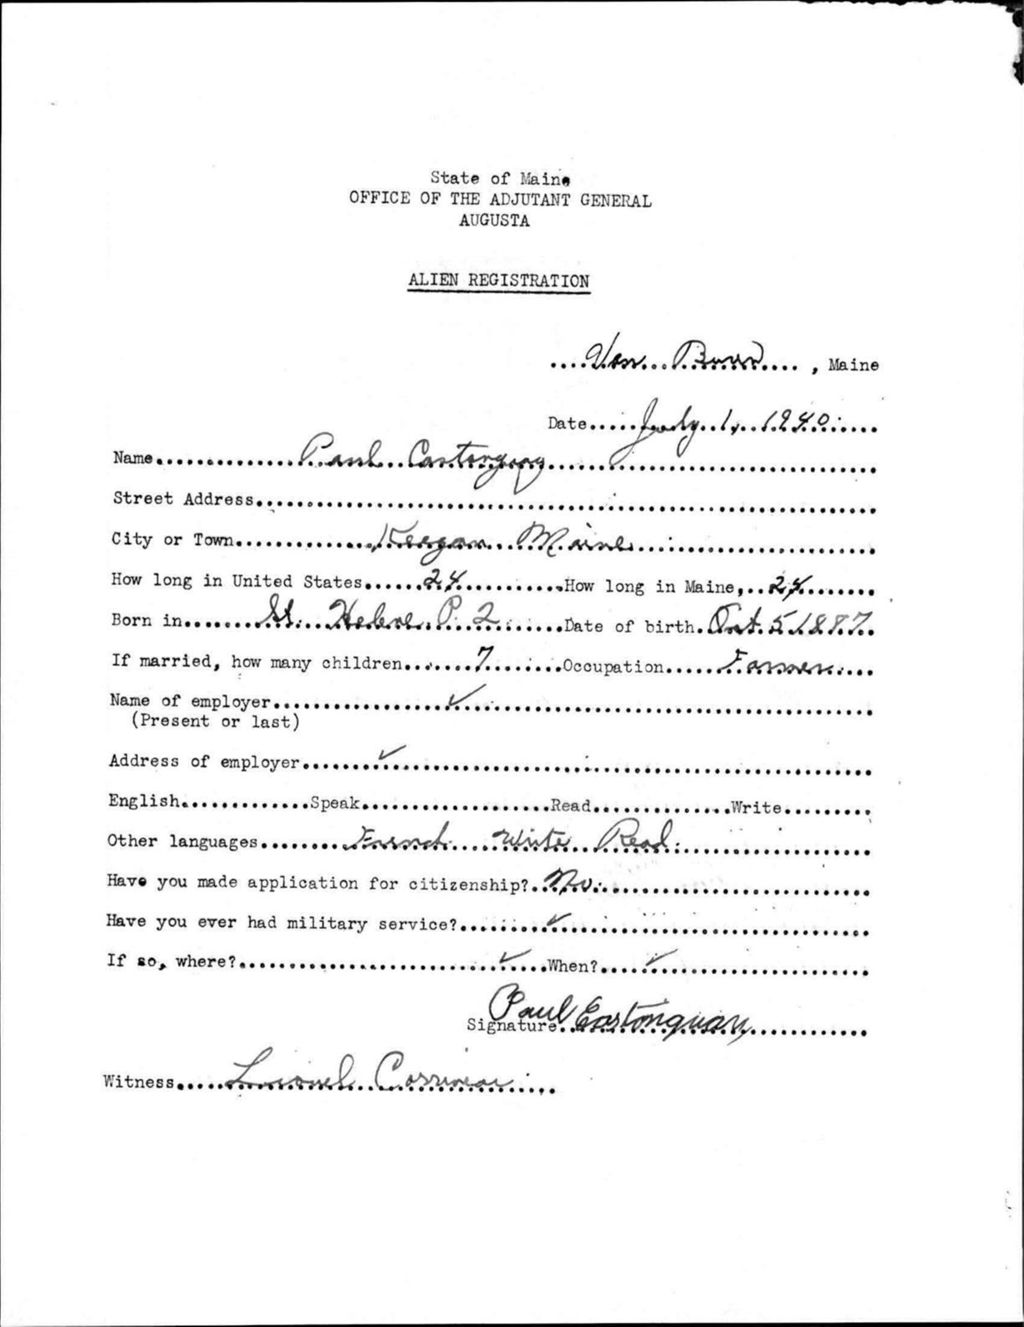 State of Maine
OFFICE OF THE ADJUTANT GENERAL
AUGUSTA
ALIEN REGISTRATION
....Van Buren...., Maine
Date....July 1, 1940....
Name....Paul Castonguay....
Street Address....
City or Town....Keegan Maine....
How long in United States....24....How long in Maine,..24....
Born in....St. Helene P. Q....Date of birth.Oct. 5 1887..
If married, how many children....7....Occupation....Farmer....
Name of employer....✓....
(Present or last)
Address of employer....✓....
English....Speak....Read....Write....
Other languages....French....Write Read....
Have you made application for citizenship?..No....
Have you ever had military service?....✓....
If so, where?....✓....When?....✓....
Signature..Paul Castonguay....
Witness....Lionel....